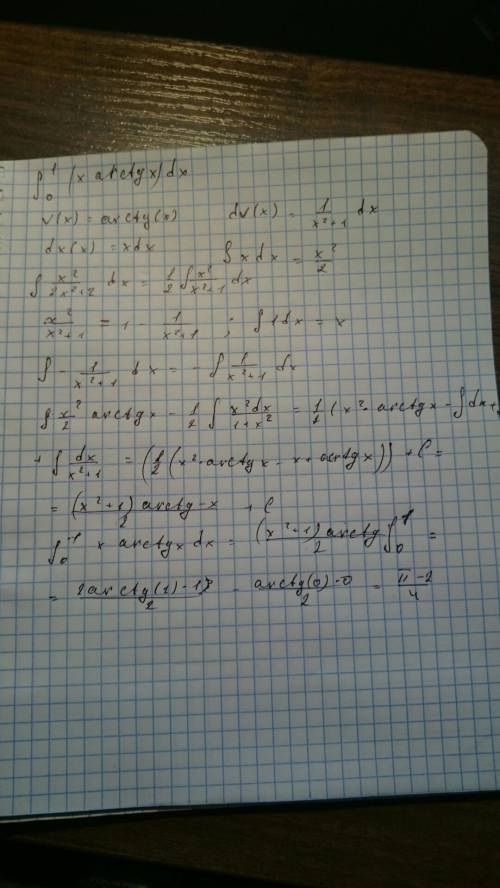 ∫₀¹ (x arctg x) dx
v(x) = arctg(x)   dv(x) = 1/(x²+1) dx
dx(x) = xdx   ∫ x dx = x²/2
∫ x²/(2x²+2) dx = 1/2 ∫ x²/(x²+1) dx
x²/(x²+1) = 1 - 1/(x²+1) ; ∫ 1dx = x
∫ - 1/(x²+1) dx = - ∫ 1/(x²+1) dx
x²/2 arctg x - 1/2 ∫ x²dx/(1+x²) = 1/2 (x² · arctg x - ∫ dx +
+ ∫ dx/(x²+1) = (1/2 (x² · arctg x - x + arctg x)) + C =
= ((x²+1) arctg - x)/2 + C
∫₀¹ x arctg x dx = (x²+1) arctg/2 ∫₀¹ =
= (2 arctg(1) - 1)/2 - (arctg(0) - 0)/2 = (π - 2)/4